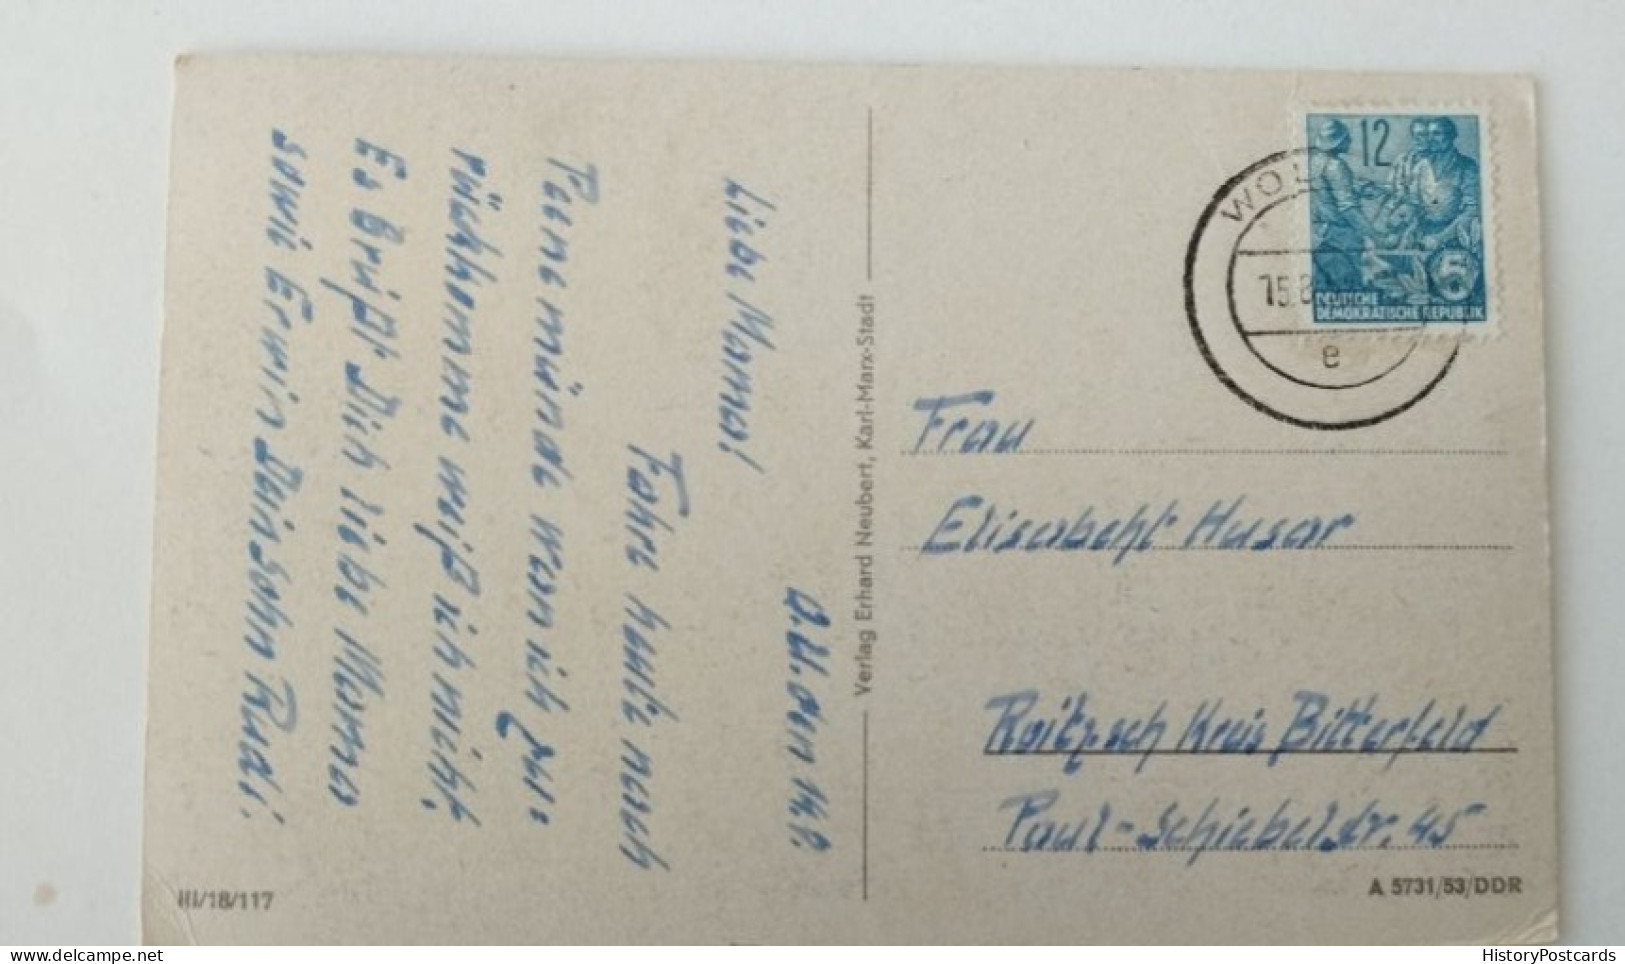 O.U. den 14.8.
Liebe Mama!
Fahre heute nach
Peenemünde wan ich zu-
rückkomme weiß ich nicht.
Es Grüßt Dich liebe Mama
sowie Erwin Dein Sohn Rudi.
Verlag Erhard Neubert, Karl-Marx-Stadt
12
DEUTSCHE
DEMOKRATISCHE REPUBLIK
5
WOL
15.8
e
Frau
Elisabeht Husar
Roitzsch Kreis Bitterfeld
Paul-Schiebelstr. 45
III/18/117
A 5731/53/DDR
delcampe.net
HistoryPostcards